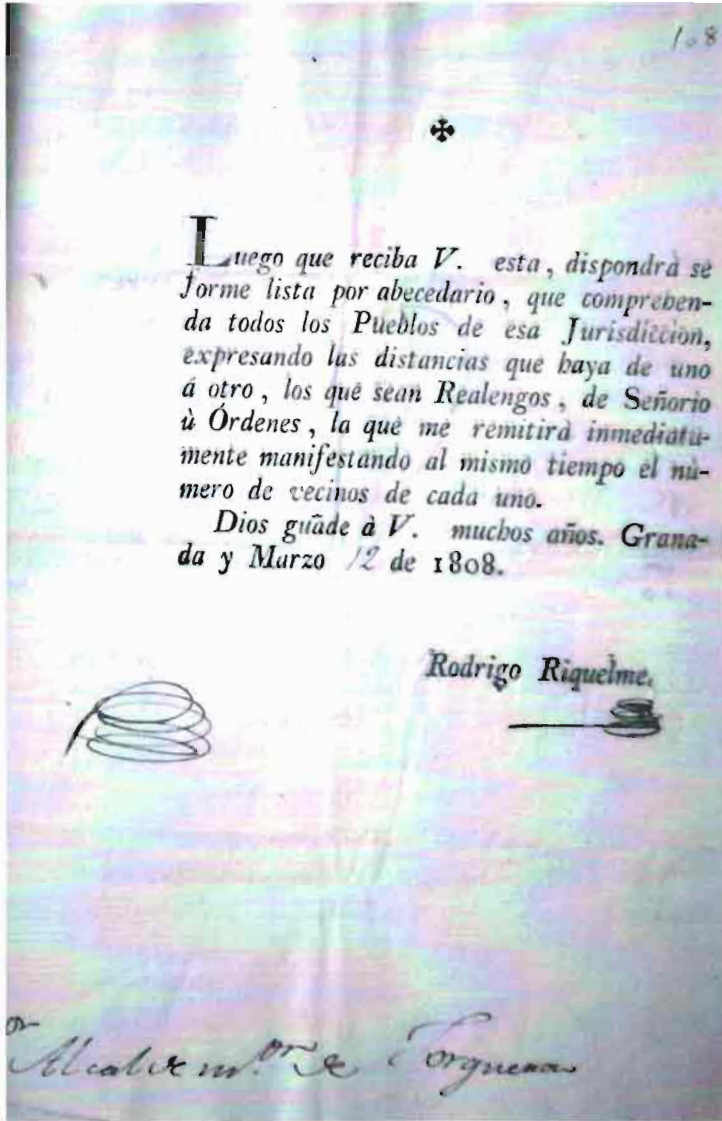 108
✠
Luego que reciba V. esta, dispondrà se
forme lista por abecedario, que comprehen-
da todos los Pueblos de esa Jurisdiccion,
expresando las distancias que haya de uno
á otro, los que sean Realengos, de Señorio
ù Órdenes, la que me remitirà inmediata-
mente manifestando al mismo tiempo el nù-
mero de vecinos de cada uno.
Dios guãde à V. muchos años. Grana-
da y Marzo 12 de 1808.
Rodrigo Riquelme.
Alcalde m.or de